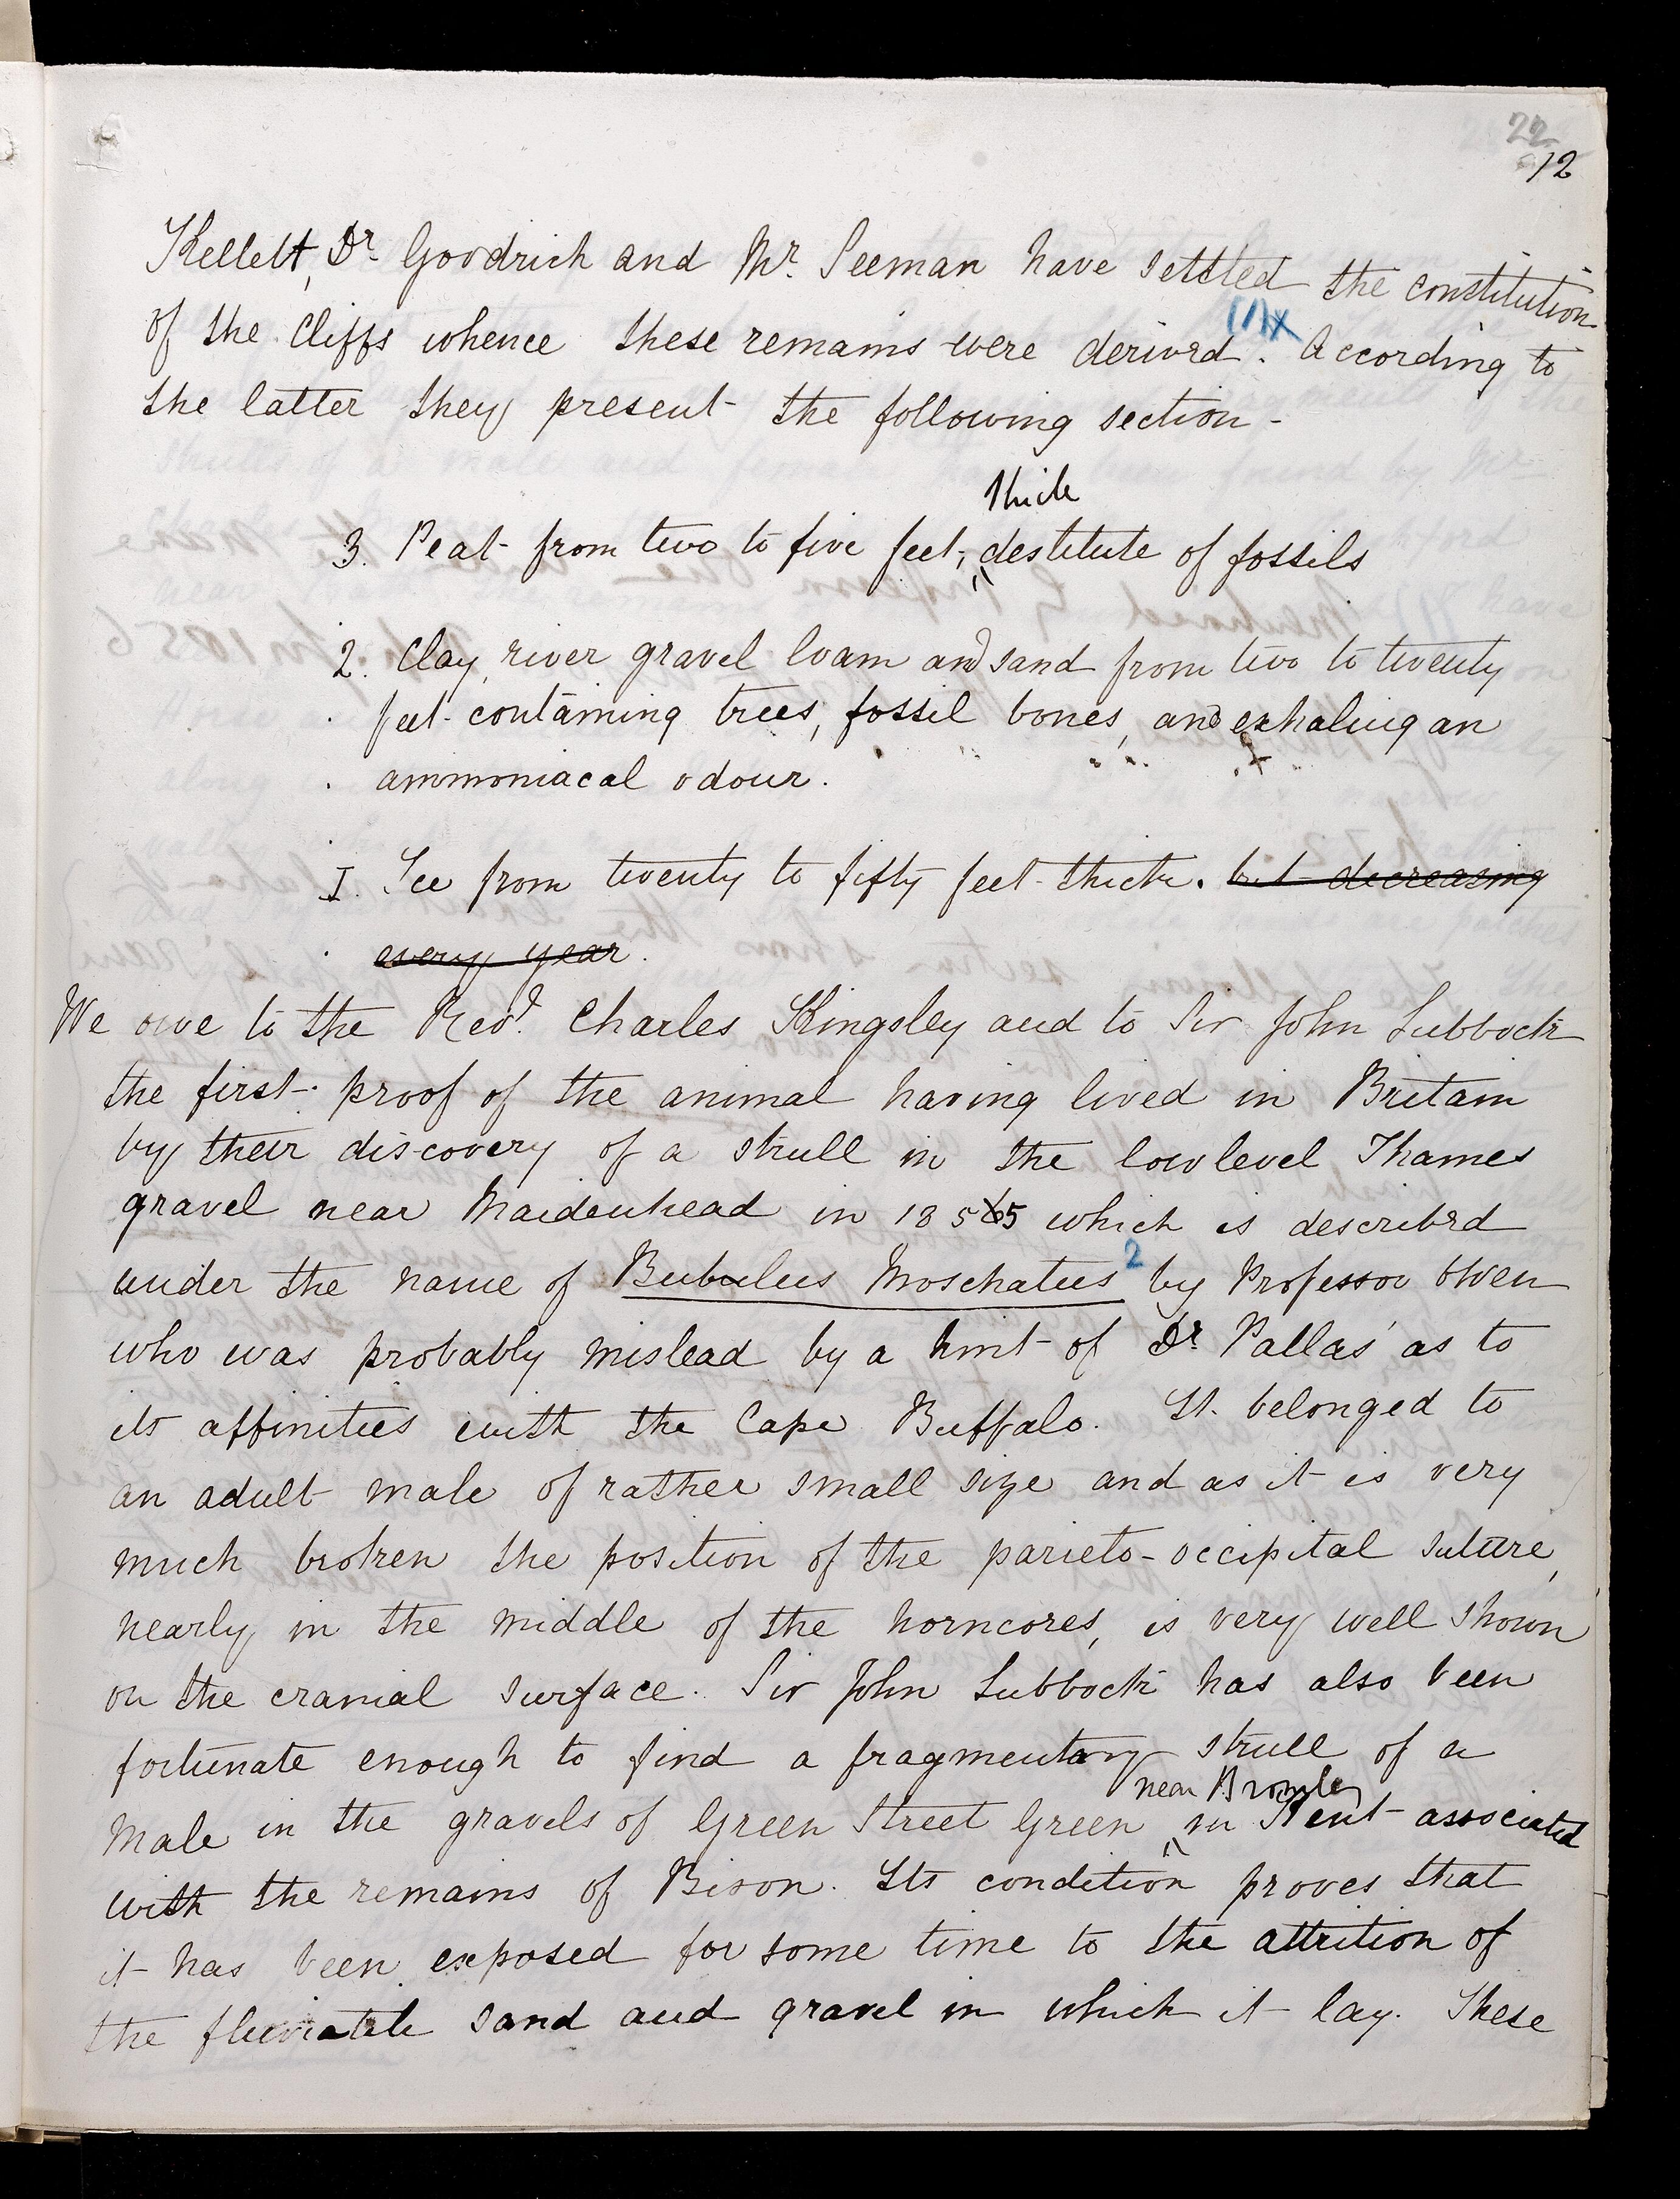 22
12
Kellett, Dr. Goodrich and Mr. Seeman have settled the constitution
of the Cliffs whence these remains were derived (1)x. According to
the latter they present the following section -
thick
3. Peat from two to five feet, destitute of fossils
2. Clay, river gravel loam and sand from two to twenty
feet containing trees, fossil bones, and exhaling an
ammoniacal odour.
I. Ice from twenty to fifty feet thick. but decreasing
every year.
We owe to the Revd. Charles Kingsley and to Sir John Lubbock
the first proof of the animal having lived in Britain
by their discovery of a skull in the low level Thames
gravel near Maidenhead in 1855 which is described
under the name of Bubulus Moschatus 2 by Professor Owen
who was probably mislead by a hint of Dr. Pallas as to
its affinities with the Cape Buffalo. It belonged to
an adult male of rather small size and as it is very
much broken the position of the parieto-occipital suture,
nearly in the middle of the horncores, is very well shown
on the cranial surface. Sir John Lubbock has also been
fortunate enough to find a fragmentary skull of a
near Bromley
male in the gravels of Green Street Green in Kent associated
with the remains of Bison. Its condition proves that
it has been exposed for some time to the attrition of
the fluviatile sand and gravel in which it lay. These